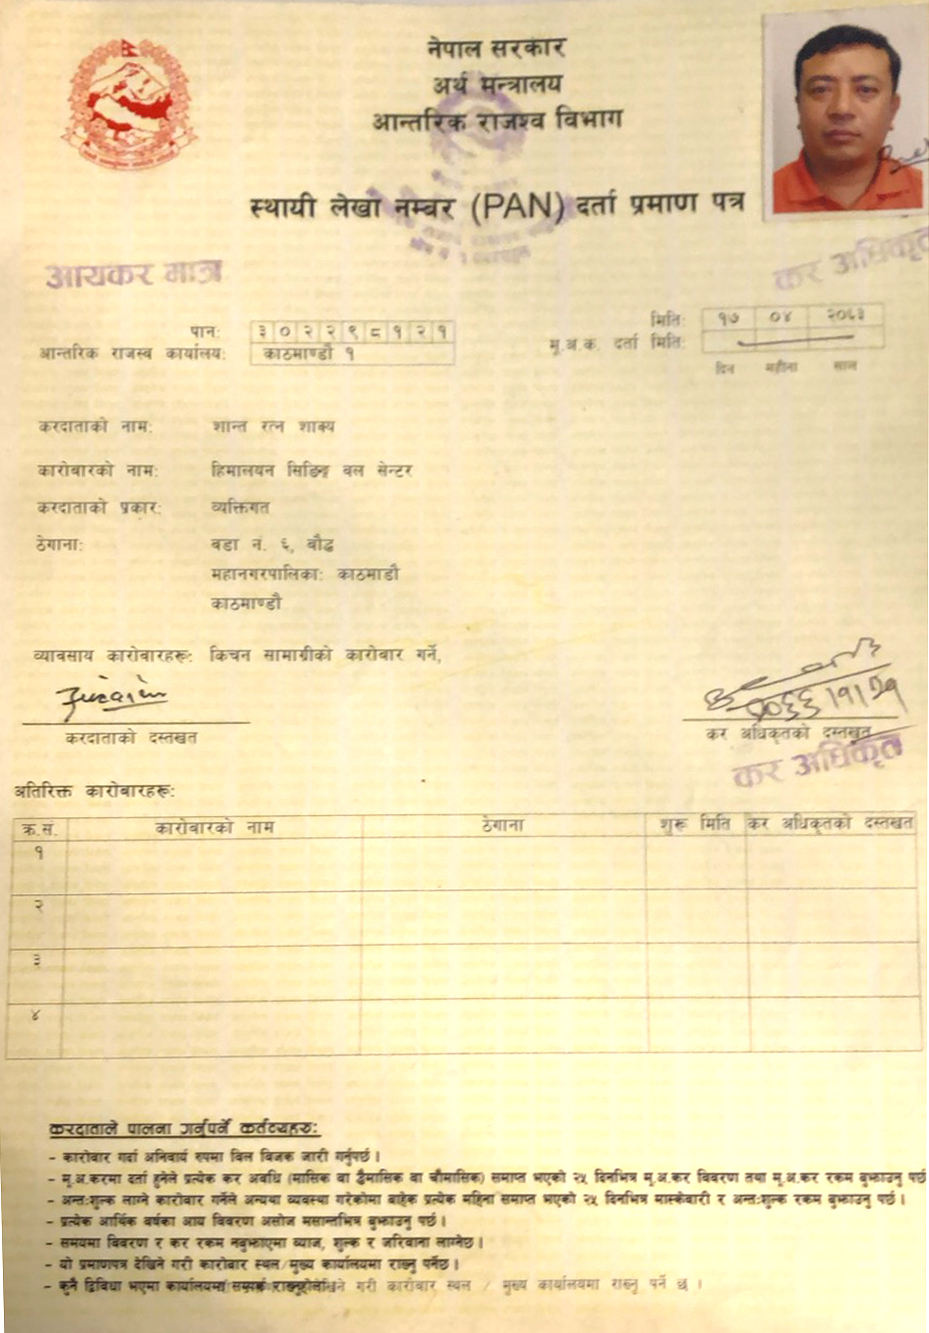 नेपाल सरकार
अर्थ मन्त्रालय
आन्तरिक राजश्व विभाग
स्थायी लेखा नम्बर (PAN) दर्ता प्रमाण पत्र
आयकर मात्र
कर अधिकृत
पान: ३०२२९८१२१
मिति: १७ ०४ २०६३
आन्तरिक राजस्व कार्यालय: काठमाण्डौ १
मू.अ.क. दर्ता मिति:
दिन महीना साल
करदाताको नाम: शान्त रत्न शाक्य
कारोबारको नाम: हिमालयन सिङिङ्ग बल सेन्टर
करदाताको प्रकार: व्यक्तिगत
ठेगाना: वडा नं. ६, बौद्ध
महानगरपालिका: काठमाडौ
काठमाण्डौ
व्यावसाय कारोबारहरू: किचन सामाग्रीको कारोबार गर्ने,
करदाताको दस्तखत
कर अधिकृतको दस्तखत
कर अधिकृत
अतिरिक्त कारोबारहरू:
क्र.सं. कारोबारको नाम ठेगाना शुरू मिति कर अधिकृतको दस्तखत
१
२
३
४
करदाताले पालना गर्नुपर्ने कर्तव्यहरु:
- कारोबार गर्दा अनिवार्य रुपमा विल विजक जारी गर्नुपर्छ ।
- मू.अ.करमा दर्ता हुनेले प्रत्येक कर अवधि (मासिक वा द्वैमासिक वा चौमासिक) समाप्त भएको २५ दिनभित्र मू.अ.कर विवरण तथा मू.अ.कर रकम बुझाउनु पर्छ
- अन्तःशुल्क लाग्ने कारोबार गर्नेले अन्यथा व्यवस्था गरेकोमा बाहेक प्रत्येक महिना समाप्त भएको २५ दिनभित्र मास्केवारी र अन्तःशुल्क रकम बुझाउनु पर्छ ।
- प्रत्येक आर्थिक वर्षका आय विवरण असोज मसान्तभित्र बुझाउनु पर्छ ।
- समयमा विवरण र कर रकम नबुझाएमा ब्याज, शुल्क र जरिवाना लाग्नेछ ।
- यो प्रमाणपत्र देखिने गरी कारोबार स्थल/मुख्य कार्यालयमा राख्नु पर्नेछ ।
- कुनै द्विविधा भएमा कार्यालयमा गरी कारोबार स्थल / मुख्य कार्यालयमा राख्नु पर्ने छ ।